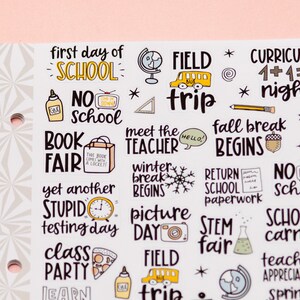 first day of
SCHOOL
FIELD
trip
CURRICU
1+1
nigh
NO
school
BOOK
FAIR
meet the
TEACHER
HELLO!
fall break
BEGINS
NO
scho
winter
break
BEGINS
RETURN
SCHOOL
paperwork
APPREC
yet another
STUPID
testing day
picture
DAY
STEM
fair
SCHO
carn
class
PARTY
FIELD
trip
teache
APPRECIA
LEARN
sprin